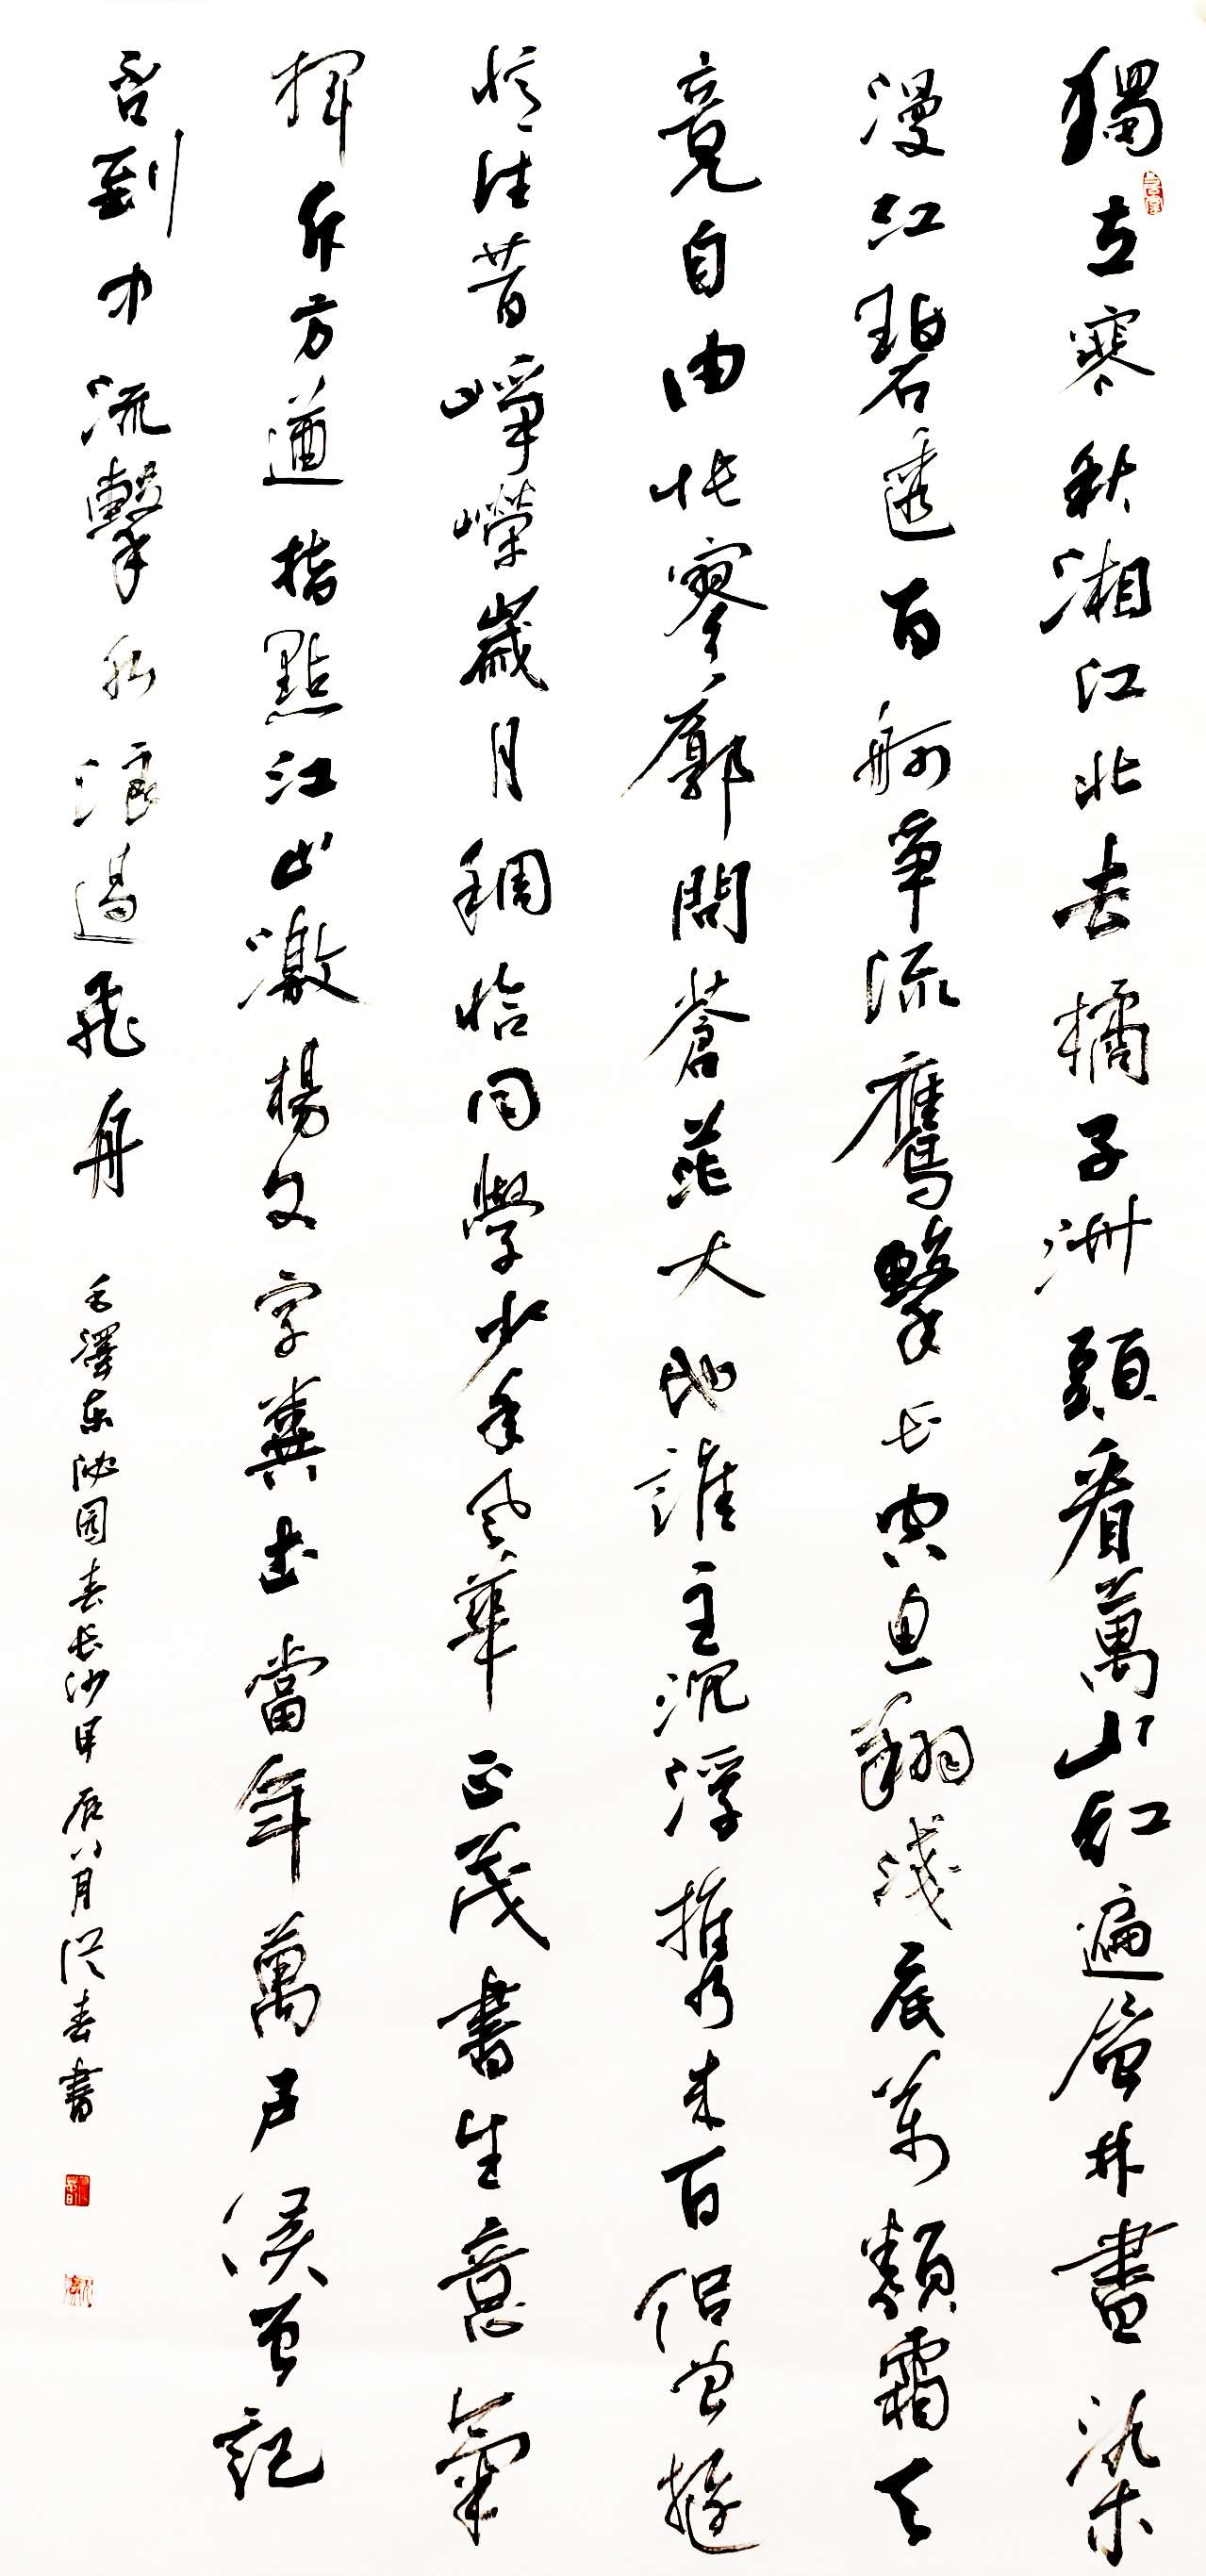 獨立寒秋湘江北去橘子洲頭看萬山紅遍層林盡染
漫江碧透百舸爭流鷹擊长空魚翔淺底萬類霜天
竞自由悵寥廓問蒼茫大地誰主沉浮攜來百侣曾遊
憶往昔崢嶸歲月稠恰同學少年風華正茂書生意氣
揮斥方遒指點江山激楊文字糞土當年萬户侯曾記
否到中流擊水浪遏飛舟
毛澤东沁园春长沙甲辰八月洪春書